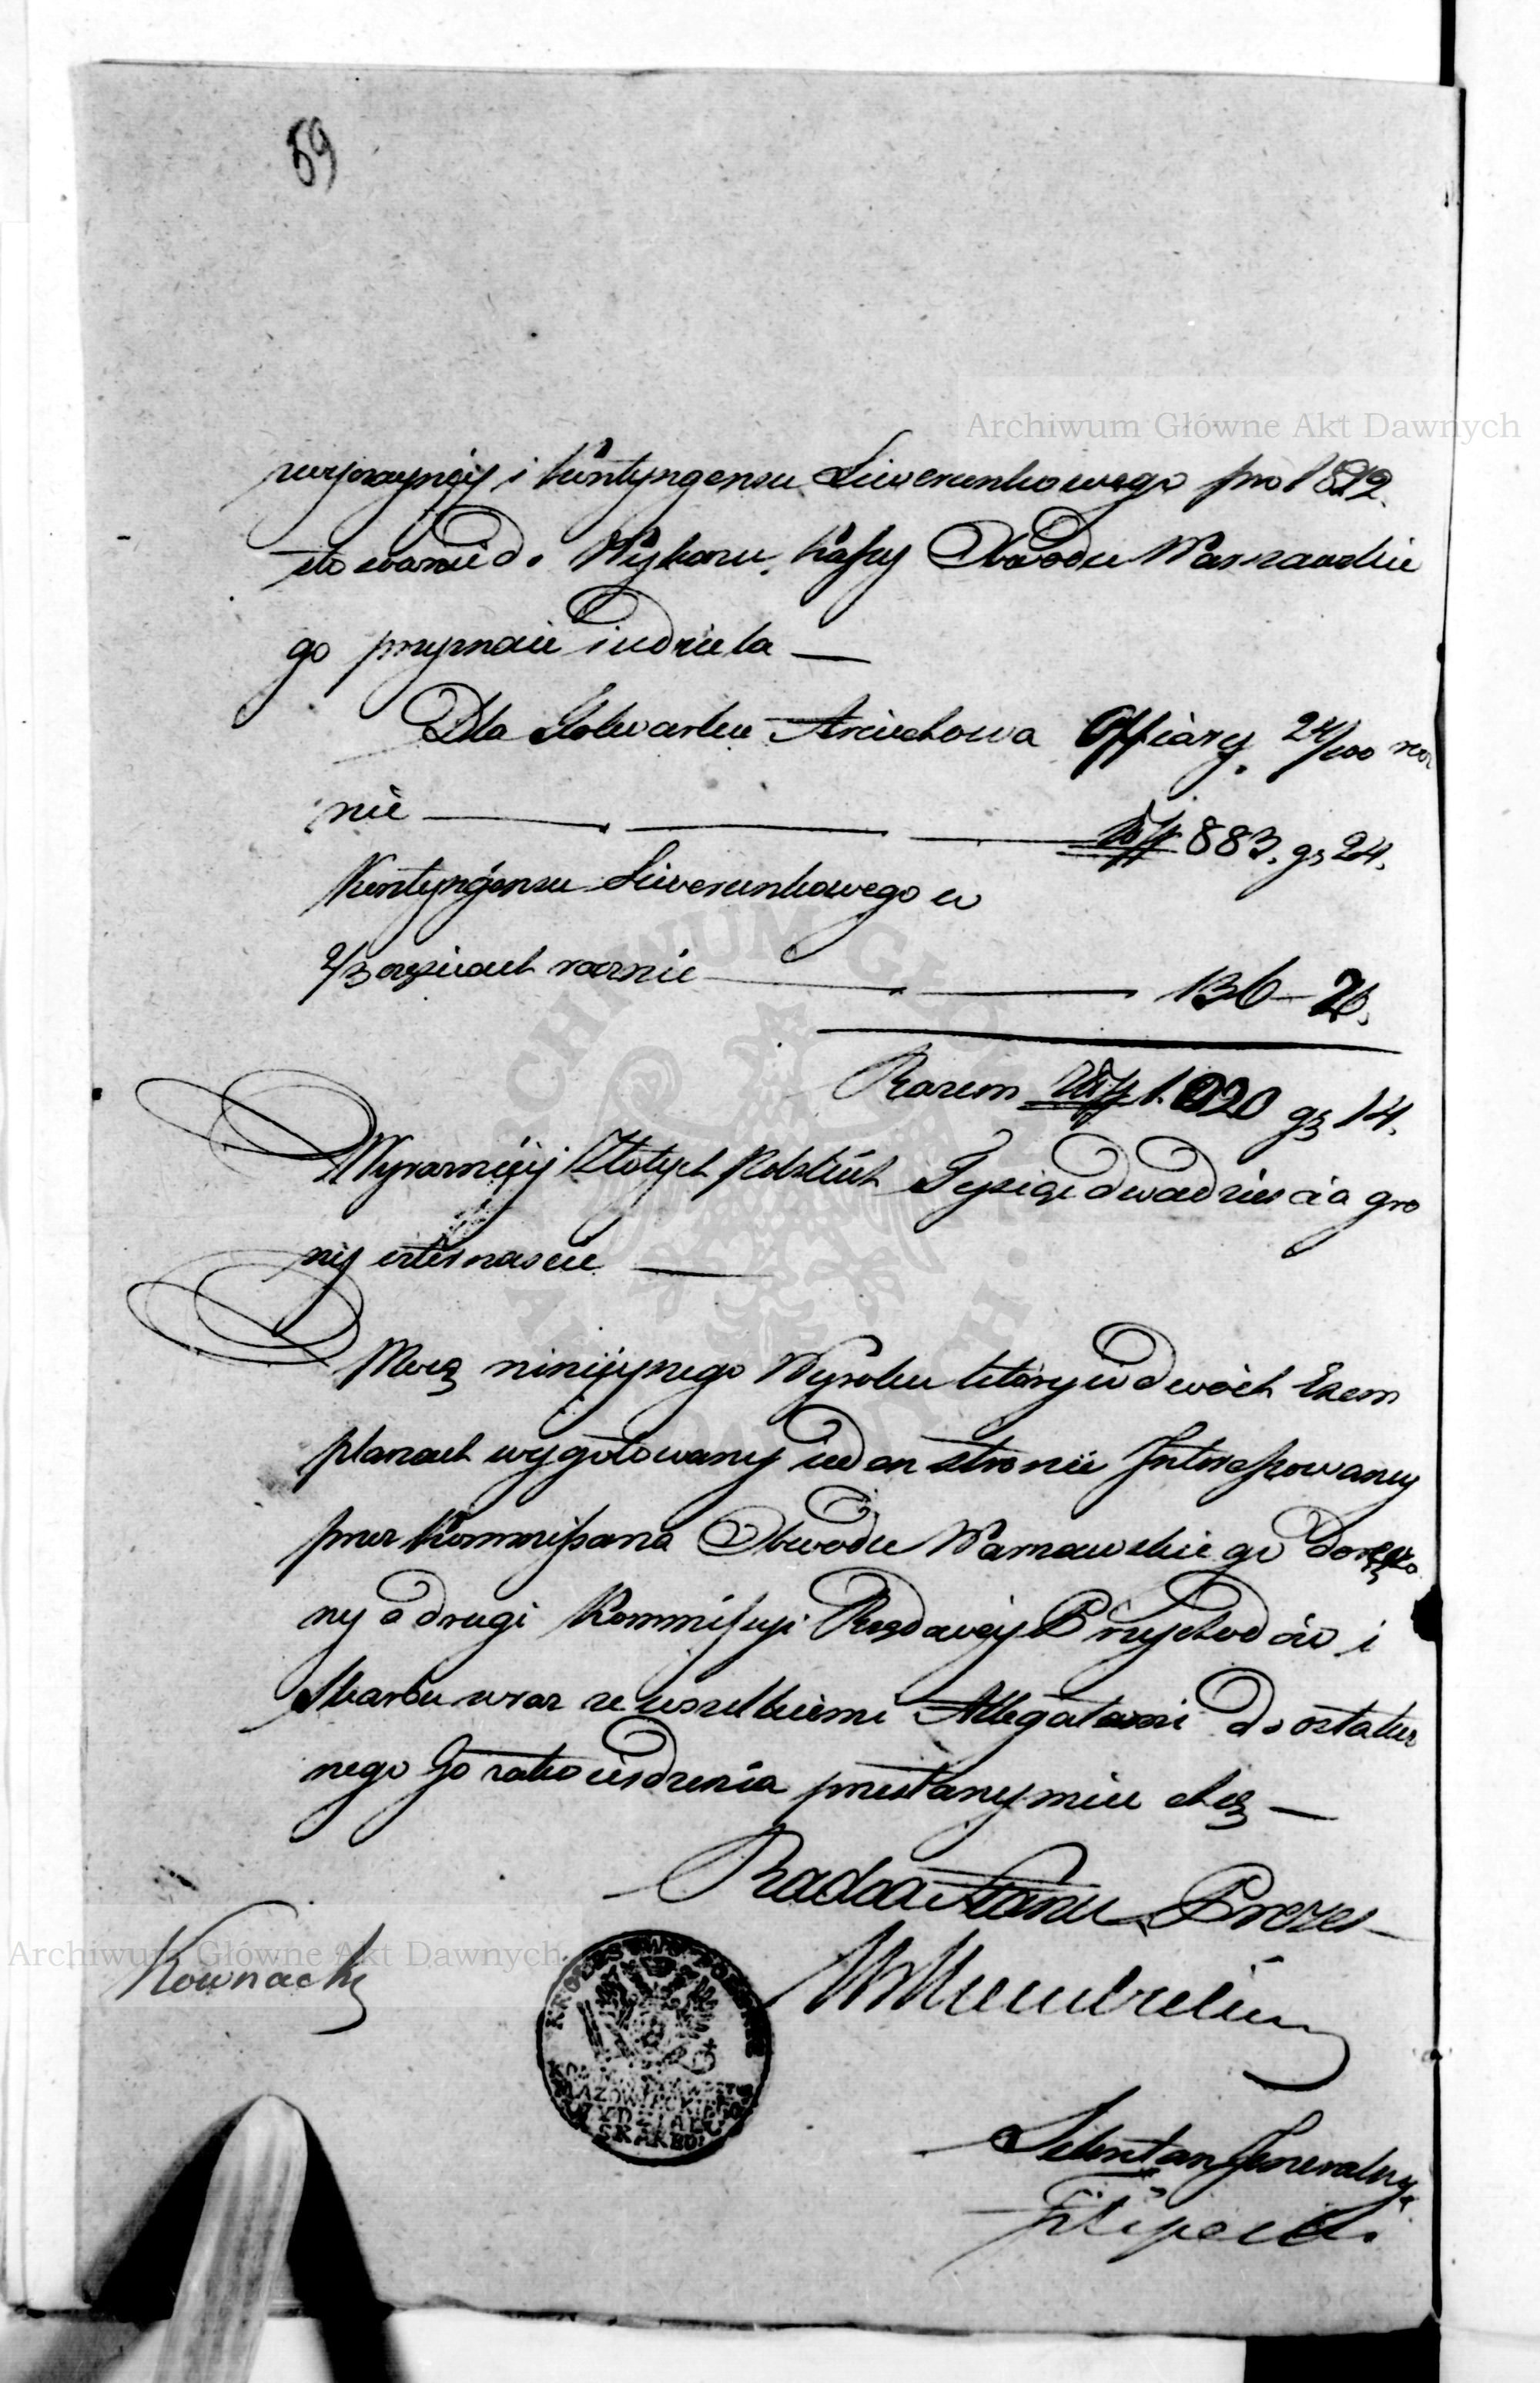 69
Archiwum Główne Akt Dawnych
zwyczaynéy i kontyngensu Liwerunkowego pro 1819
stosownie do Wykazu Kassy Obwodu Warszawskie
go przyznaie i udziela —
Dla Folwarku Arciechowa Offiary 24/100 rocz
nie — — — złp 883. gr 24.
Kontyngensu Liwerunkowego w
2/3 częściach rocznie — — 136 — 20.
Razem złp 1.020 gr 14.
Wyraznéy Złotych Polskich Tysiąc dwadzieścia gro
szy czternaście —
Mocą ninieyszego Wyroku który w dwóch Exem
plarzach wygotowany ieden stronie Interessowaney
przez Kommissarza Obwodu Warszawskiego doręczo
ny a drugi Kommissyi Rządowéy Przychodów i
Skarbu wraz ze wszelkiemi Allegatami do ostatecz
nego Go zatwierdzenia przesłanym mieć chcą —
Radca Stanu Prezes
Archiwum Główne Akt Dawnych
Kownacki
KROLESTWO POLSKIE
MAZOWIECKIEGO
WYDZIAŁ
SKARBU
Sekretarz Generalny
Filipecki
ARCHIWUM GŁÓWNE AKT DAWNYCH